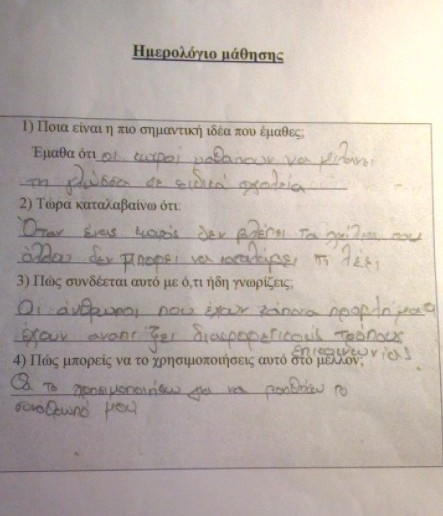 Ημερολόγιο μάθησης
1) Ποια είναι η πιο σημαντική ιδέα που έμαθες;
Έμαθα ότι οι κωφοί μαθαίνουν να μιλάνε
τη γλώσσα σε ειδικά σχολεία
2) Τώρα καταλαβαίνω ότι:
Όταν ένας κωφός δεν βλέπει τα χείλια του
άλλου δεν μπορεί να καταλάβει τι λέει
3) Πώς συνδέεται αυτό με ό,τι ήδη γνωρίζεις;
Οι άνθρωποι που έχουν κάποια προβλήματα
έχουν αναπτύξει διαφορετικούς τρόπους
επικοινωνίας
4) Πώς μπορείς να το χρησιμοποιήσεις αυτό στο μέλλον;
Θα το χρησιμοποιήσω για να βοηθήσω το
συνάθρωπό μου